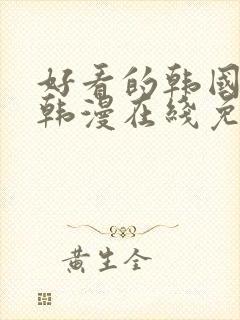 好看的韩国
韩漫在线免
黄生全